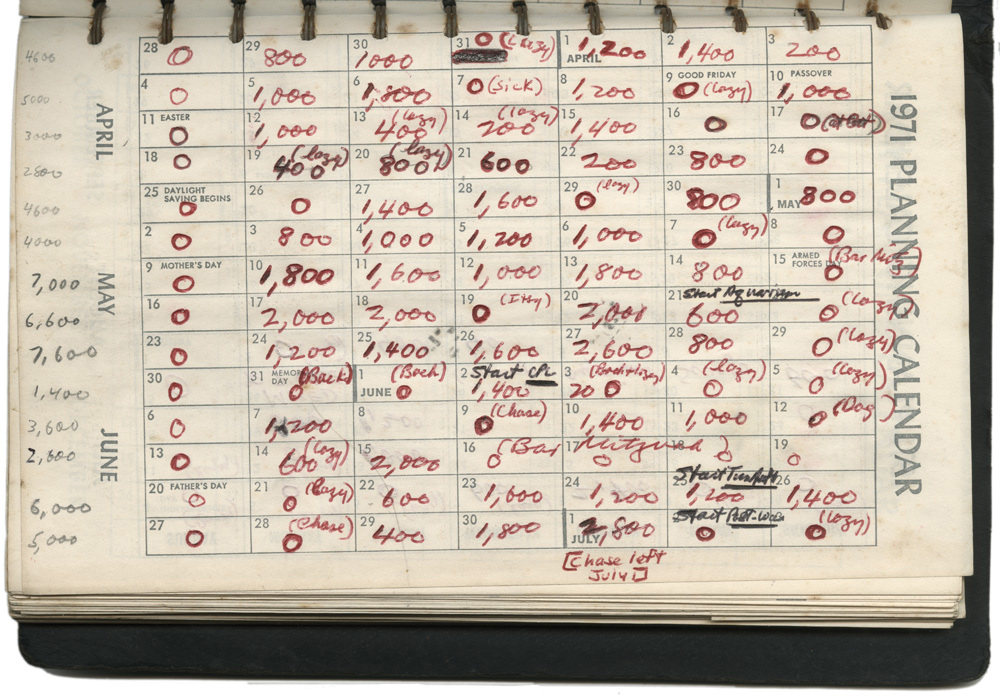 4600 28 0 29 800 30 1000 31 0 (Lazy) 1 APRIL 1,200 2 1,400 3 200
5000 4 0 5 1,000 6 1,800 7 0 (Sick) 8 1,200 9 GOOD FRIDAY 0 (lazy) 10 PASSOVER 1,000
3000 11 EASTER 0 12 1,000 13 (lazy) 400 14 (lazy) 200 15 1,400 16 0 17 0
2800 18 0 19 (lazy) 400 20 (lazy) 800 21 600 22 200 23 800 24 0
4600 25 DAYLIGHT SAVING BEGINS 0 26 0 27 1,400 28 1,600 29 (lazy) 0 30 800 1 MAY 800
4000 2 0 3 800 4 1,000 5 1,200 6 1,000 7 (lazy) 0 8 0
7,000 9 MOTHER'S DAY 0 10 1,800 11 1,600 12 1,000 13 1,800 14 800 15 ARMED FORCES DAY 0
6,600 16 0 17 2,000 18 2,000 19 0 20 2,000 21 Start Aquarium 600 0 (Lazy)
7,600 23 0 24 1,200 25 1,400 26 1,600 27 2,600 28 800 29 0 (Lazy)
1,400 30 0 31 MEMORIAL DAY (Back) 0 1 JUNE (Back) 0 2 Start CPL 1,400 3 (Back+lazy) 20 0 4 (lazy) 0 5 (Lazy) 0
3,600 6 0 7 1,200 8 9 (Chase) 0 10 1,400 11 1,000 12 (Dog) 0
2,600 13 0 14 (lazy) 600 15 2,000 16 0 (Bar 17 Mitzvah 0 18 ) 19 0
6,000 20 FATHER'S DAY 0 21 (Lazy) 0 22 600 23 1,600 24 1,200 25 Start 1,200 26 1,400
5,000 27 0 28 (Chase) 0 29 400 30 1,800 1 JULY 2,800 Start 0 (lazy) 0
[Chase left
July 1]
APRIL
MAY
JUNE
1971 PLANNING CALENDAR